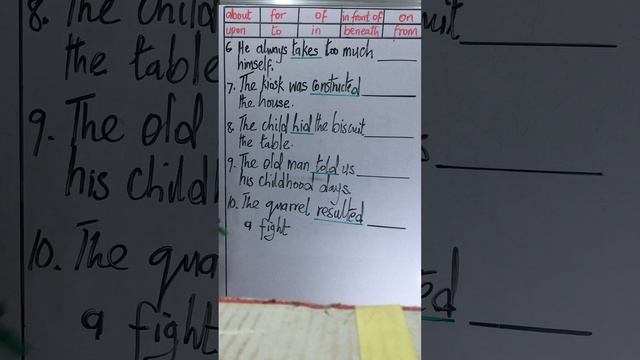 about for of in front of on
upon to in beneath from
6. He always takes too much ____
himself.
7. The kiosk was constructed ____
the house.
8. The child hid the biscuit ____
the table.
9. The old man told us ____
his childhood days
10. The quarrel resulted ____
a fight